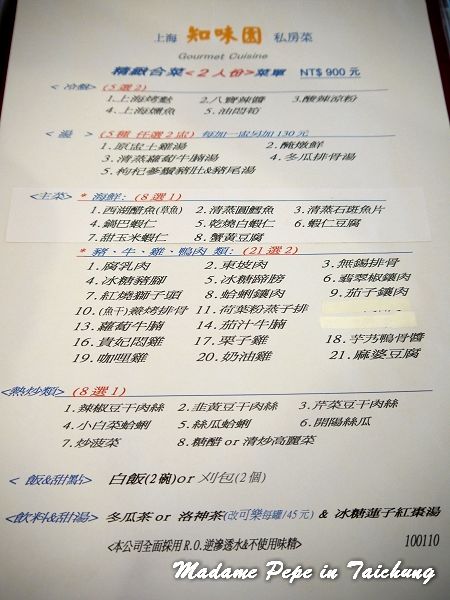 上海 知味園 私房菜
Gourmet Cuisine
精緻合菜<2人份>菜單 NT$ 900 元
< 冷盤> (5選2)
1.上海烤麩 2.八寶辣醬 3.酸辣涼粉
4.上海燻魚 5.油悶筍
< 湯 > (5種 任選2盅) 每加一盅另加130元
1.原盅土雞湯 2.醃燉鮮
3.清蒸蘿蔔牛腩湯 4.冬瓜排骨湯
5.枸杞參鬚豬肚&豬尾湯
<主菜> * 海鮮: (8選1)
1.西湖醋魚(草魚) 2.清蒸圓鱈魚 3.清蒸石斑魚片
4.鍋巴蝦仁 5.乾燒白蝦仁 6.蝦仁豆腐
7.甜玉米蝦仁 8.蟹黃豆腐
* 豬、牛、雞、鴨肉 類: (21選2)
1.腐乳肉 2.東坡肉 3.無錫排骨
4.冰糖豬腳 5.冰糖蹄膀 6.翡翠椒鑲肉
7.紅燒獅子頭 8.蛤蜊鑲肉 9.茄子鑲肉
10.(魚干)㸆烤排骨 11.荷葉粉蒸子排
13.蘿蔔牛腩 14.茄汁牛腩
16.貴妃悶雞 17.栗子雞 18.芋艿鴨骨醬
19.咖哩雞 20.奶油雞 21.麻婆豆腐
<熱炒類> (8選1)
1.辣椒豆干肉絲 2.韭黃豆干肉絲 3.芹菜豆干肉絲
4.小白菜蛤蜊 5.絲瓜蛤蜊 6.開陽絲瓜
7.炒菠菜 8.糖醋or清炒高麗菜
< 飯&甜點> 白飯(2碗)or 刈包(2個)
<飲料&甜湯> 冬瓜茶 or 洛神茶(改可樂每罐/45元) & 冰糖蓮子紅棗湯
<本公司全面採用R.O.逆滲透水&不使用味精> 100110
Madame Pepe in Taichung